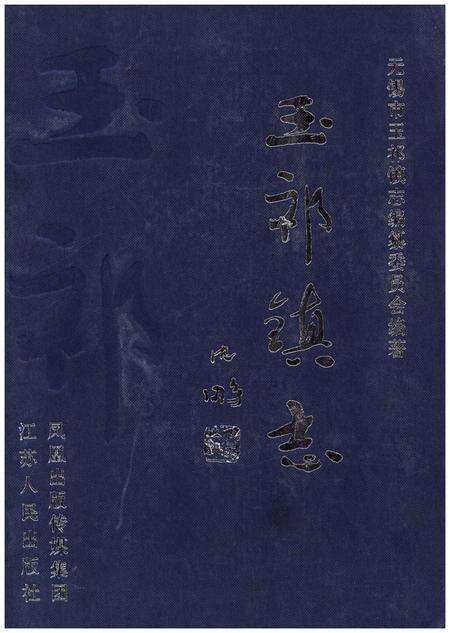 无锡市玉祁镇志编纂委员会编著
玉祁镇志
沈鹏
玉祁
凤凰出版传媒集团
江苏人民出版社